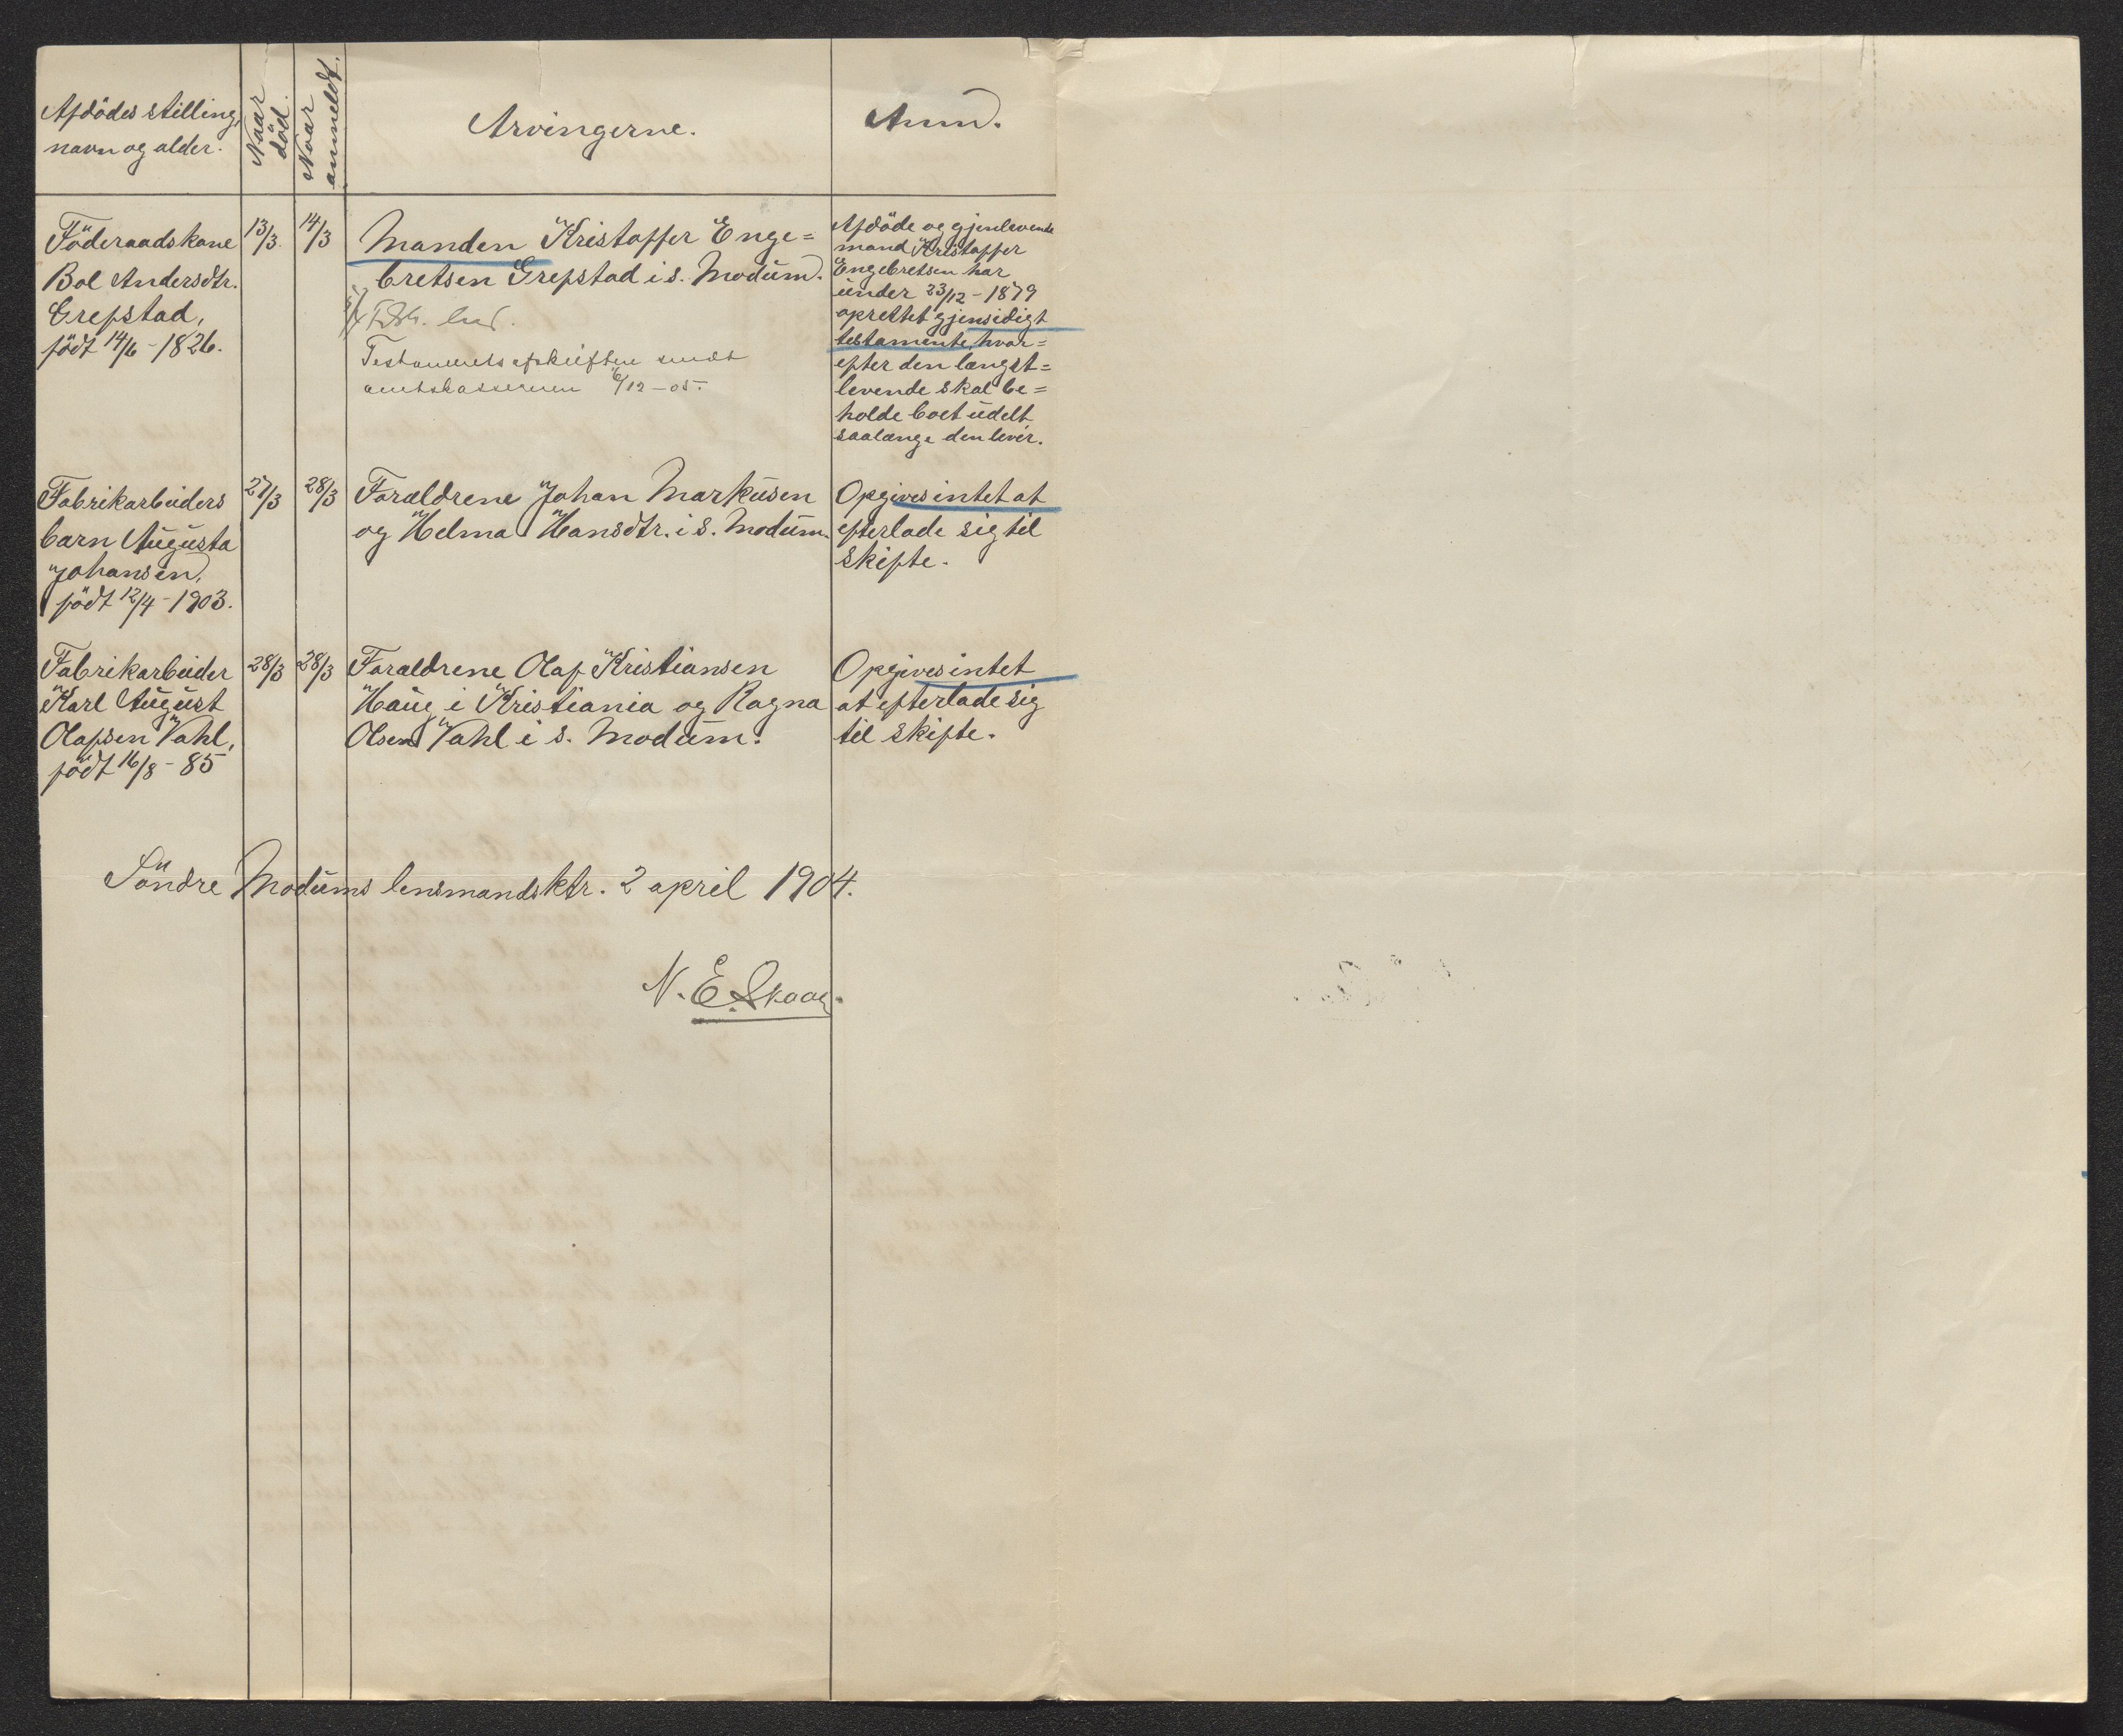 Afdödes stilling,
navn og alder.
Naar
död.
Naar
anmeldt.
Arvingerne.
Anm.
Föderaadskone
Bol Andersdtr.
Grefstad,
födt 14/6 - 1826.
13/3.
14/3
Manden Kristoffer Enge=
bretsen Grefstad i s. Modum.
Testamentsafskriften sendt
amtskassereren 6/12 - 05.
Afdöde og gjenlevende
mand Kristoffer
Engebretsen har
under 23/12 - 1879
oprettet gjensidigt
testamente, hvor=
efter den længst=
levende skal be=
holde boet udelt
saalænge den lever.
Fabrikarbeiders
barn Augusta
Johansen,
födt 12/4 - 1903.
27/3
28/3
Forældrene Johan Markusen
og Helma Hansdtr. i s. Modum.
Opgives intet at
efterlade sig til
skifte.
Fabrikarbeider
Karl August
Olafsen Vahl,
födt 16/8 - 85
28/3
28/3
Forældrene Olaf Kristiansen
Haug i Kristiania og Ragna
Olsen Vahl i s. Modum.
Opgives intet
at efterlade sig
til skifte.
Söndre Modums lensmandsktr. 2 april 1904.
N. E. Skaag.